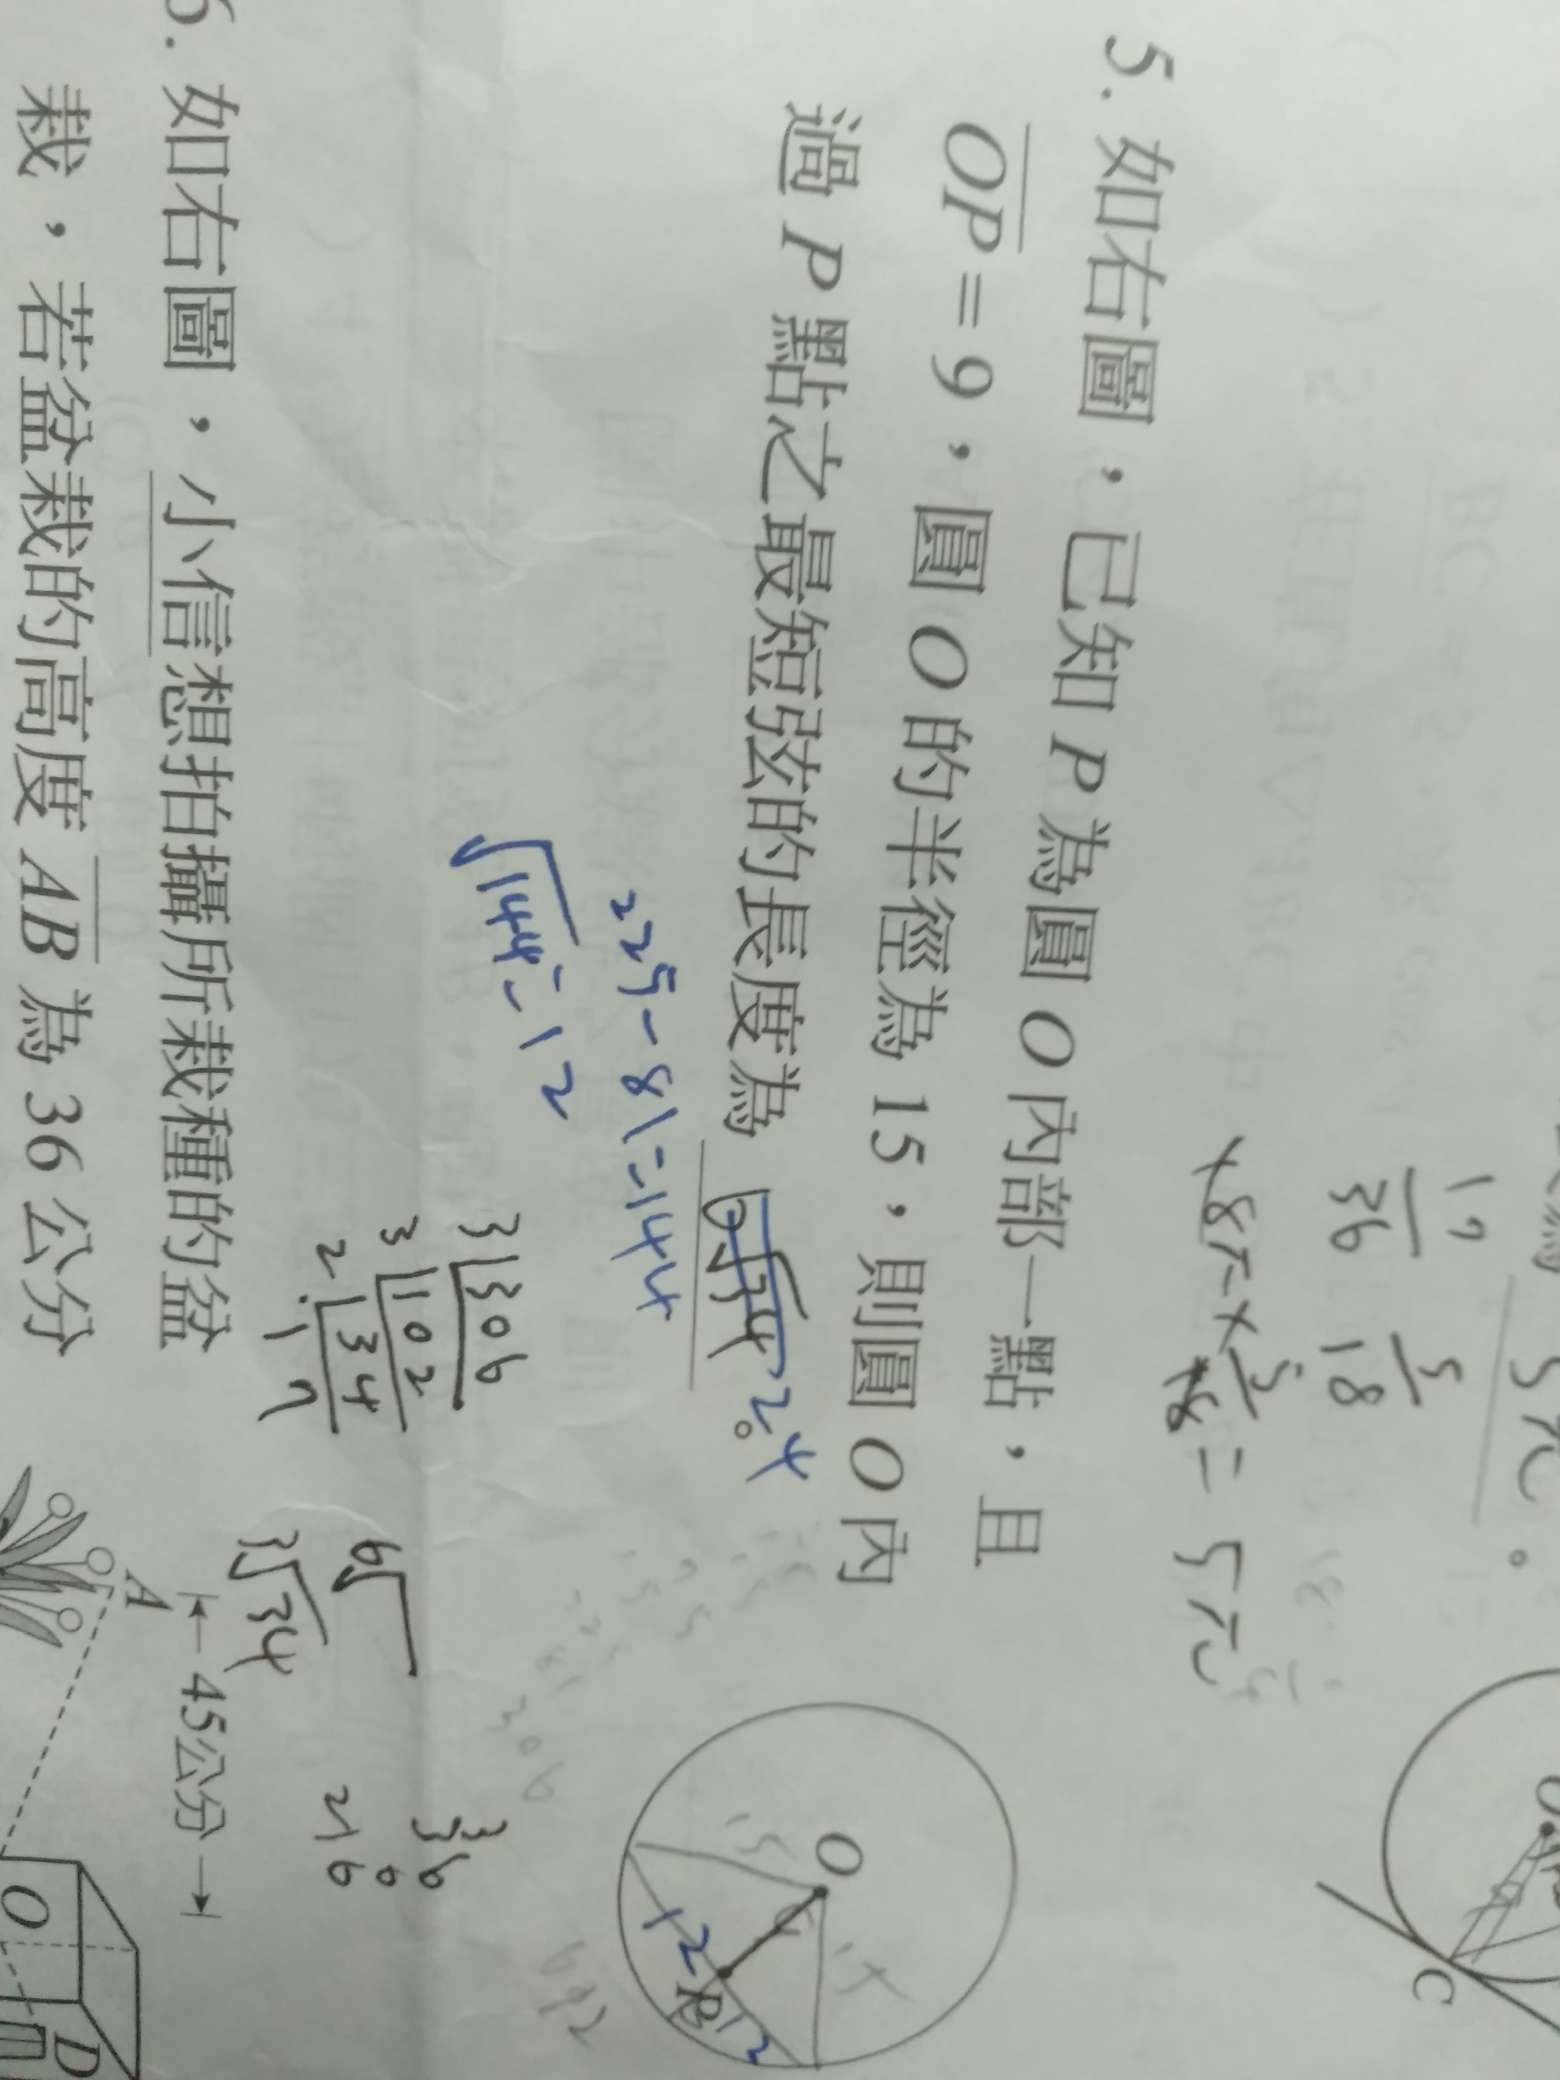 5π。
17/36 5/18
×8π×5/18=5π
5. 如右圖，已知 P 為圓 O 內部一點，且
OP = 9，圓 O 的半徑為 15，則圓 O 內
過 P 點之最短弦的長度為 24。
225-81=144
√144=12
3 306
3 102
2 34
17
6√
3√34
O
15
15
9
12
P
12
C
6. 如右圖，小信想拍攝所栽種的盆
栽，若盆栽的高度 AB 為 36 公分
A
45公分
O
D